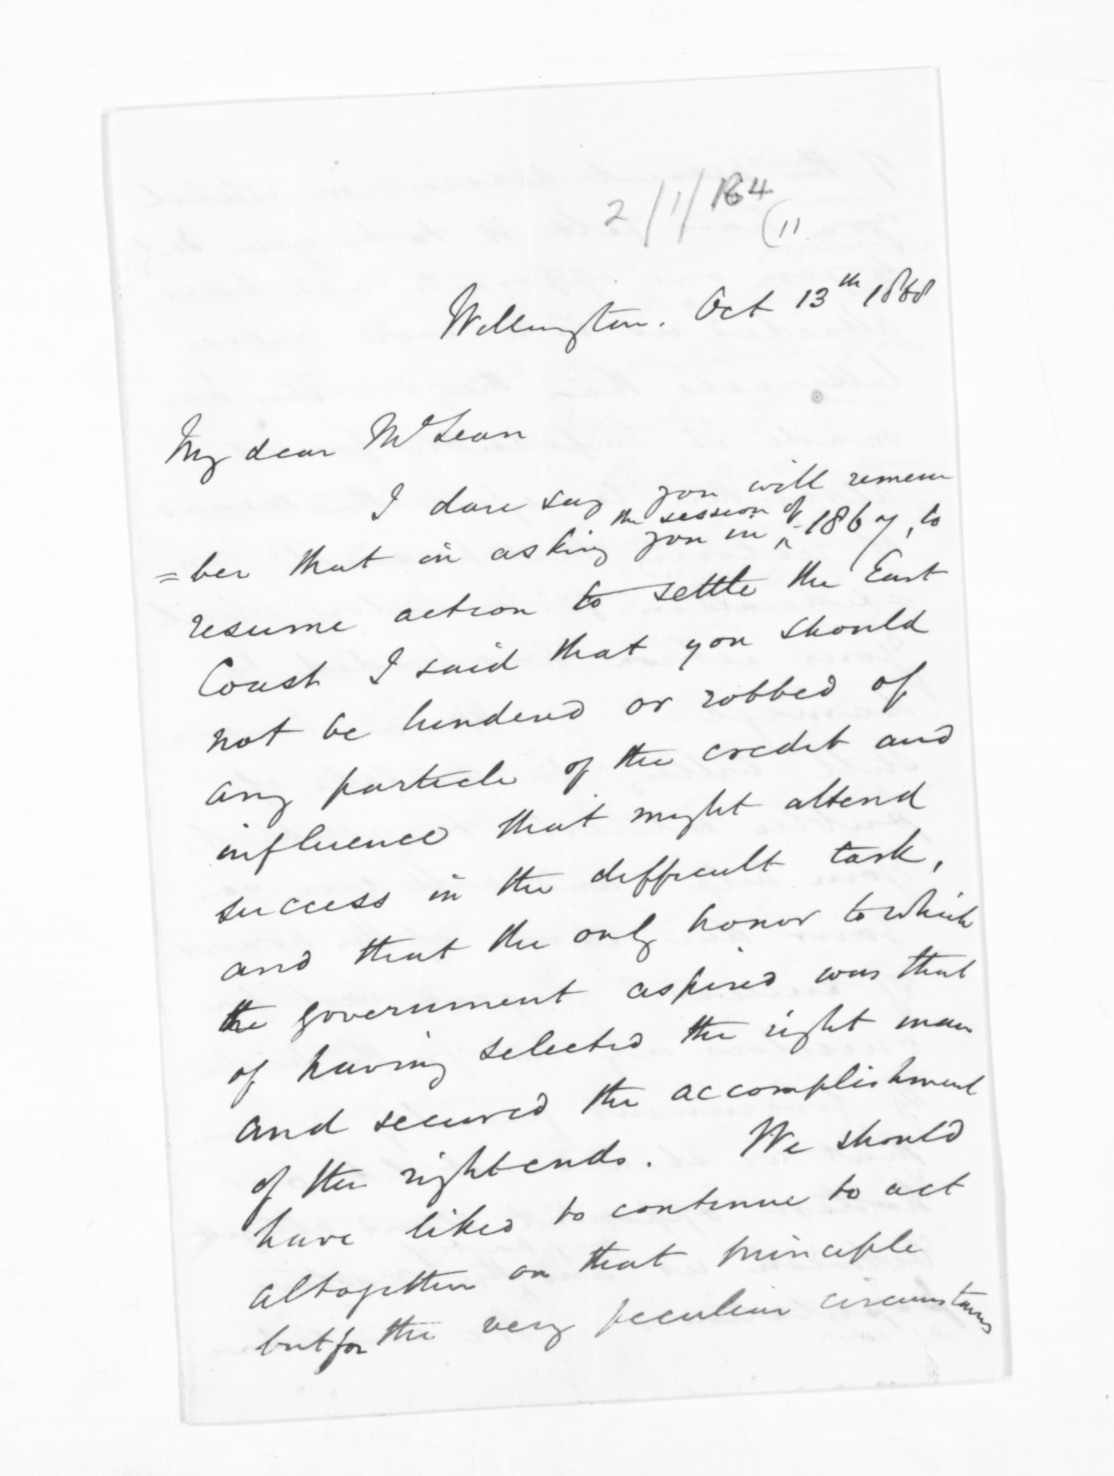 2/1/164
(11
Wellington. Oct 13th 1868
My dear McLean
I dare say you will remem
the session of
=ber that in asking you in ^ 1867, to
resume action to settle the East
Coast I said that you should
not be hindered or robbed of
any particle of the credit and
influence that might attend
success in the difficult task,
and that the only honor to which
the government aspired was that
of having selected the right man
and secured the accomplishment
of the right ends. We should
have liked to continue to act
altogether on that principle
but for the very peculiar circumstances